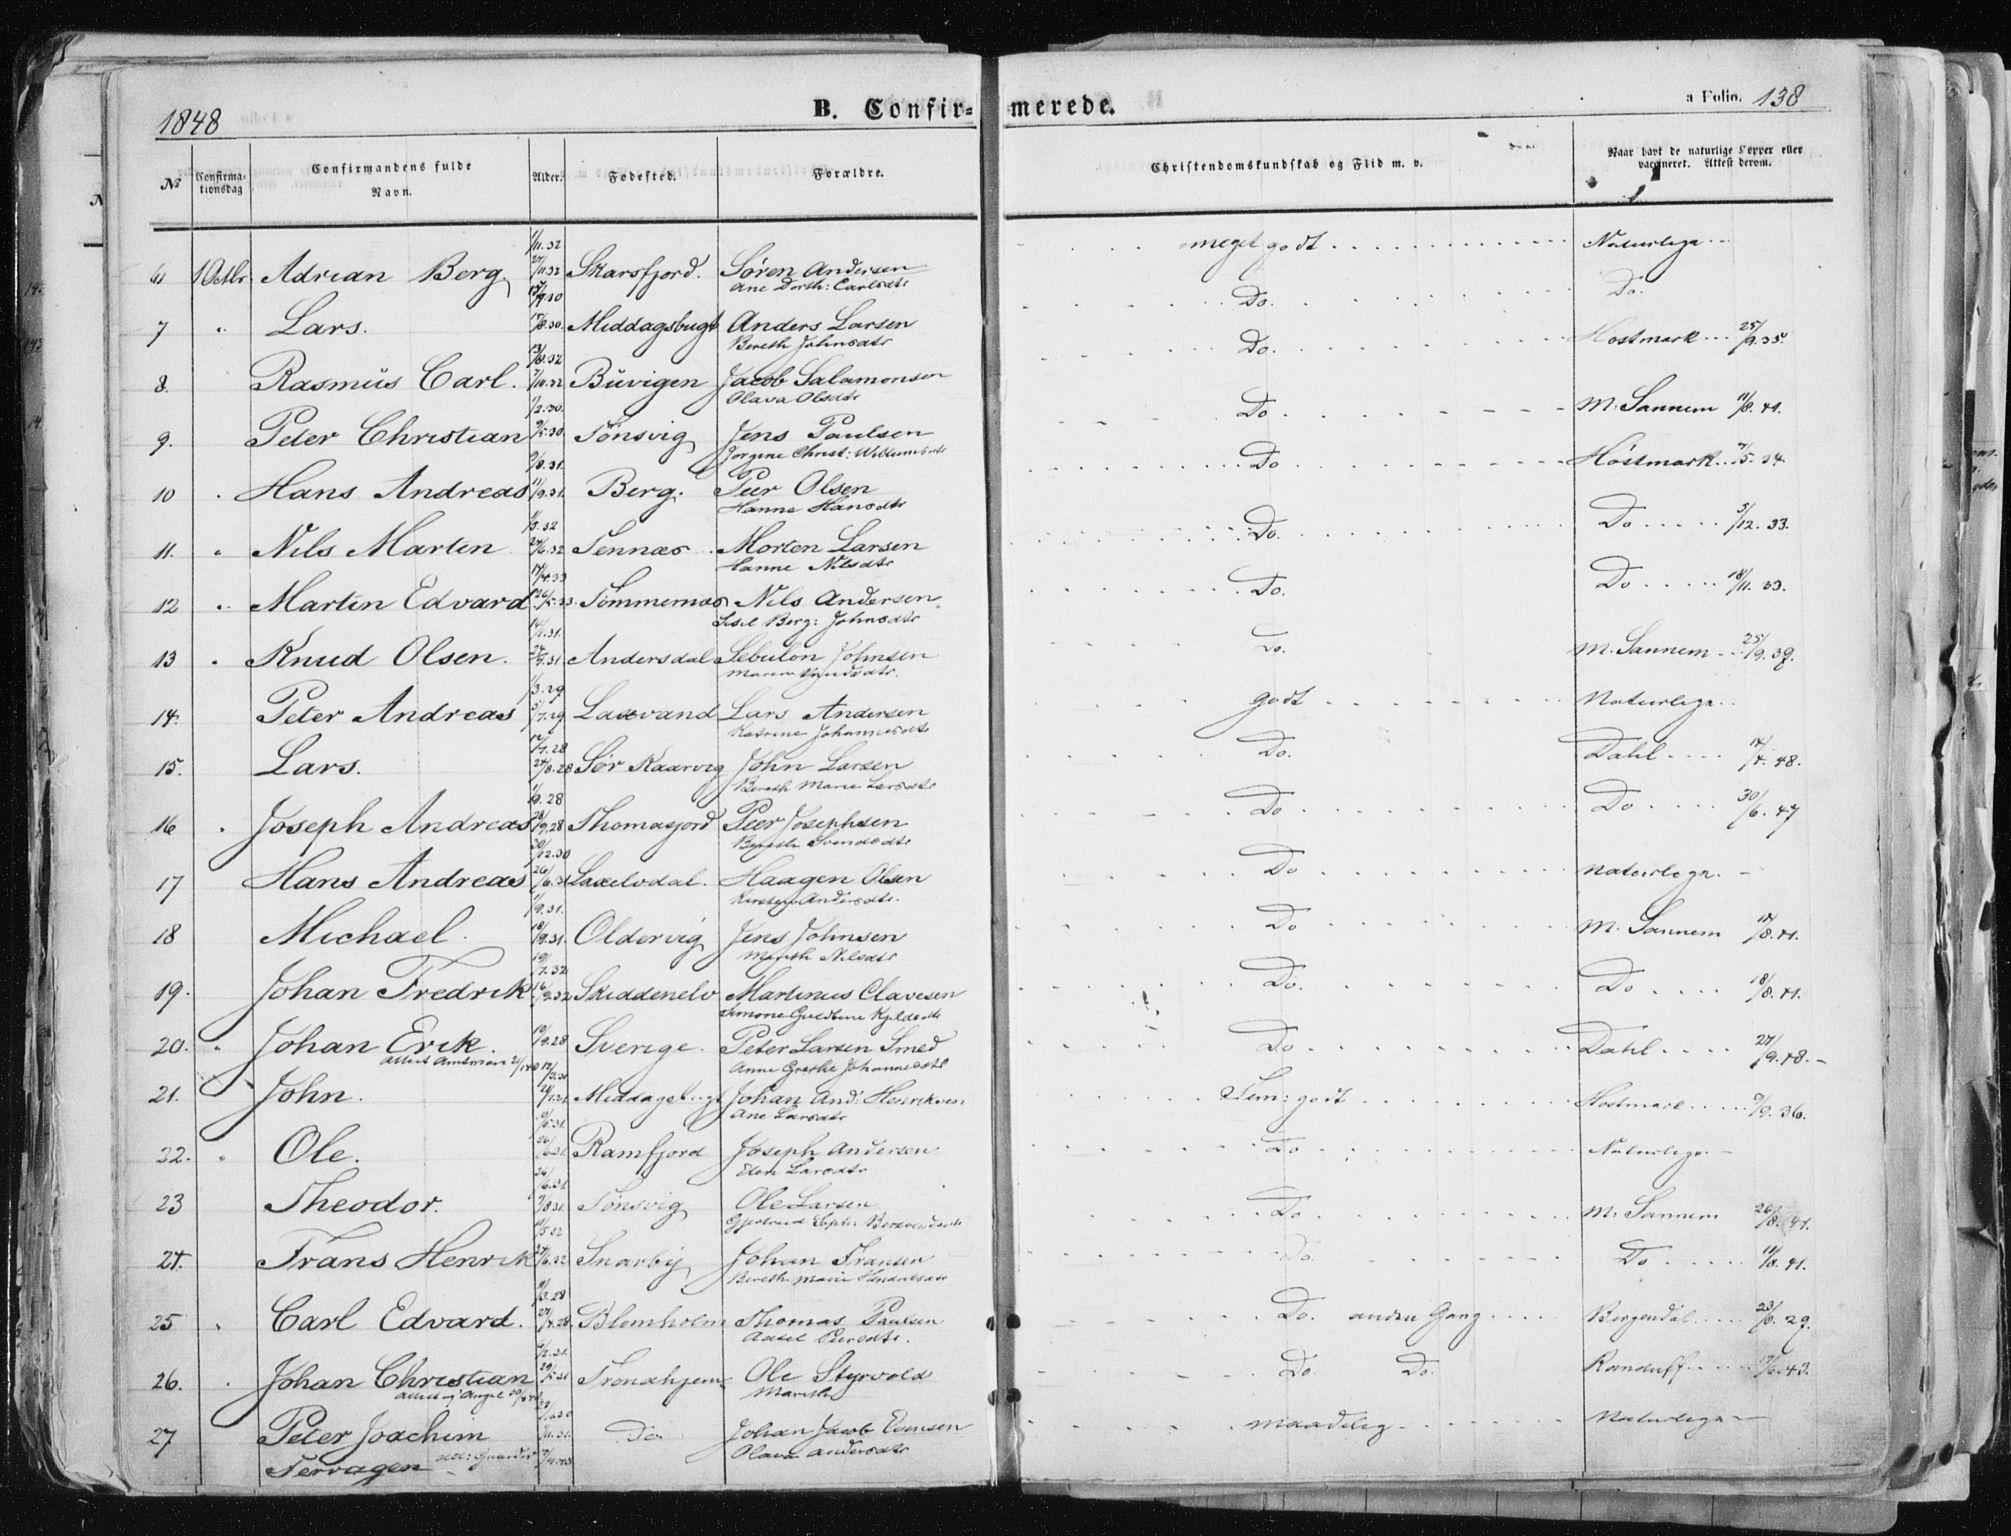 1848
B. Confir- merede.
a Folio. 138
No Confirmationsdag Confirmandens fulde Navn. Alder. Fødested. Forældre. Christendomskundskab og Flid m. v. Naar havt de naturlige Kopper eller vaccineret. Attest derom.
1/11.32
6 1 Octbr. Adrian Berg 27/11.32 Skarsfjord. Søren Andersen meget godt Naturlige
Ane Dorth: Carlsdtr
7 " Lars. 17/8.30. Middagsbugt Anders Larsen Do. Do.
Bereth Johnsdtr
13/8.32
8. Rasmus Carl. 7/10.32 Buvigen Jacob Salamonsen Do. Høstmark 25/9.35.
Olava Olsdtr
1/2.30.
9. Peter Christian 9/5.30. Tønsvig Jens Paulsen Do. M. Sannem 11/8.41.
Jorgine Christ:
9/8.31.
10 Hans Andreas 11/9.31. Berg. Peer Olsen Do Høstmark 7/5.34
Hanne Hansdtr
1/5.32
11. " Nils Martin 24/6.32 Tennæs Morten Larsen Do. Do 5/12.33.
Hanne Nilsdtr
14/4.33
12 " Martin Edvard 26/5.33. Tømmernæs Nils Andersen Do. Do 18/11.33.
Sisel Berg: Johnsdtr
13 " Knud Olsen. Andersdal Sebulon Johnsen Do. M. Sannem 25/9.39.
Maren Knudsdtr.
1/3.29
14. Peter Andreas 5/7.29 Laxvand Lars Andersen godt Naturlige
Katrine Johannesdtr
15. Lars. 24/8.28 Sør Kaarvig John Larsen Do. Dahl 14/4.48.
Bereth Marie Larsdtr
1/9.28
16 Joseph Andreas 28/9.28 Thomasjord Peer Josephsen Do Do 30/6.47
Bereth Svendsdtr
30/12.30
17 Hans Andreas 26/6.31 Laxelvdal. Haagen Olsen Do Naturlige.
Kirsten Andersdtr.
1/9.31.
18 Michael. 18/9.31. Oldervig Jens Johnsen Do M. Sannem 18/8.41.
Mareth Nilsdtr
19. Johan Fredrik 16/9.32 Skiddenelv Martinus Clavesen Do. Do 18/8.41.
Simone Kjeldsdtr
20. " Johan Erik. 10/9.28 Sverige. Peter Larsen Smed Do Dahl 27/9.48.
Anne Grethe Johannesdtr
21. John. Middagsbugt Johan And: Henriksen Tem: godt Høstmark 9/9.36.
Ane Larsdtr
22. " Ole. Ramfjord Joseph Andersen Do Naturlige
Elen Larsdtr
23 Theodor. 7/8.31 Tønsvig Ole Larsen Do M. Sannem 26/8.41.
11/5.32
24. Frans Henrik 24/6.32 Snarby Johan Fransen Do. Do 11/8.41.
Bereth Marie
25 " Carl Edvard. 27/4.28. Blomholm Thomas Paulsen Do. anden Gang Bergendal 23/8.29.
Peersdtr.
26. Johan Christian Trondhjem Ole Styrvold Do. Do. Randulff 17/6.43.
Mareth
27 Peter Joachim Do Johan Jacob Evensen maadelig Naturlige
Fervagen Olava Andersdtr